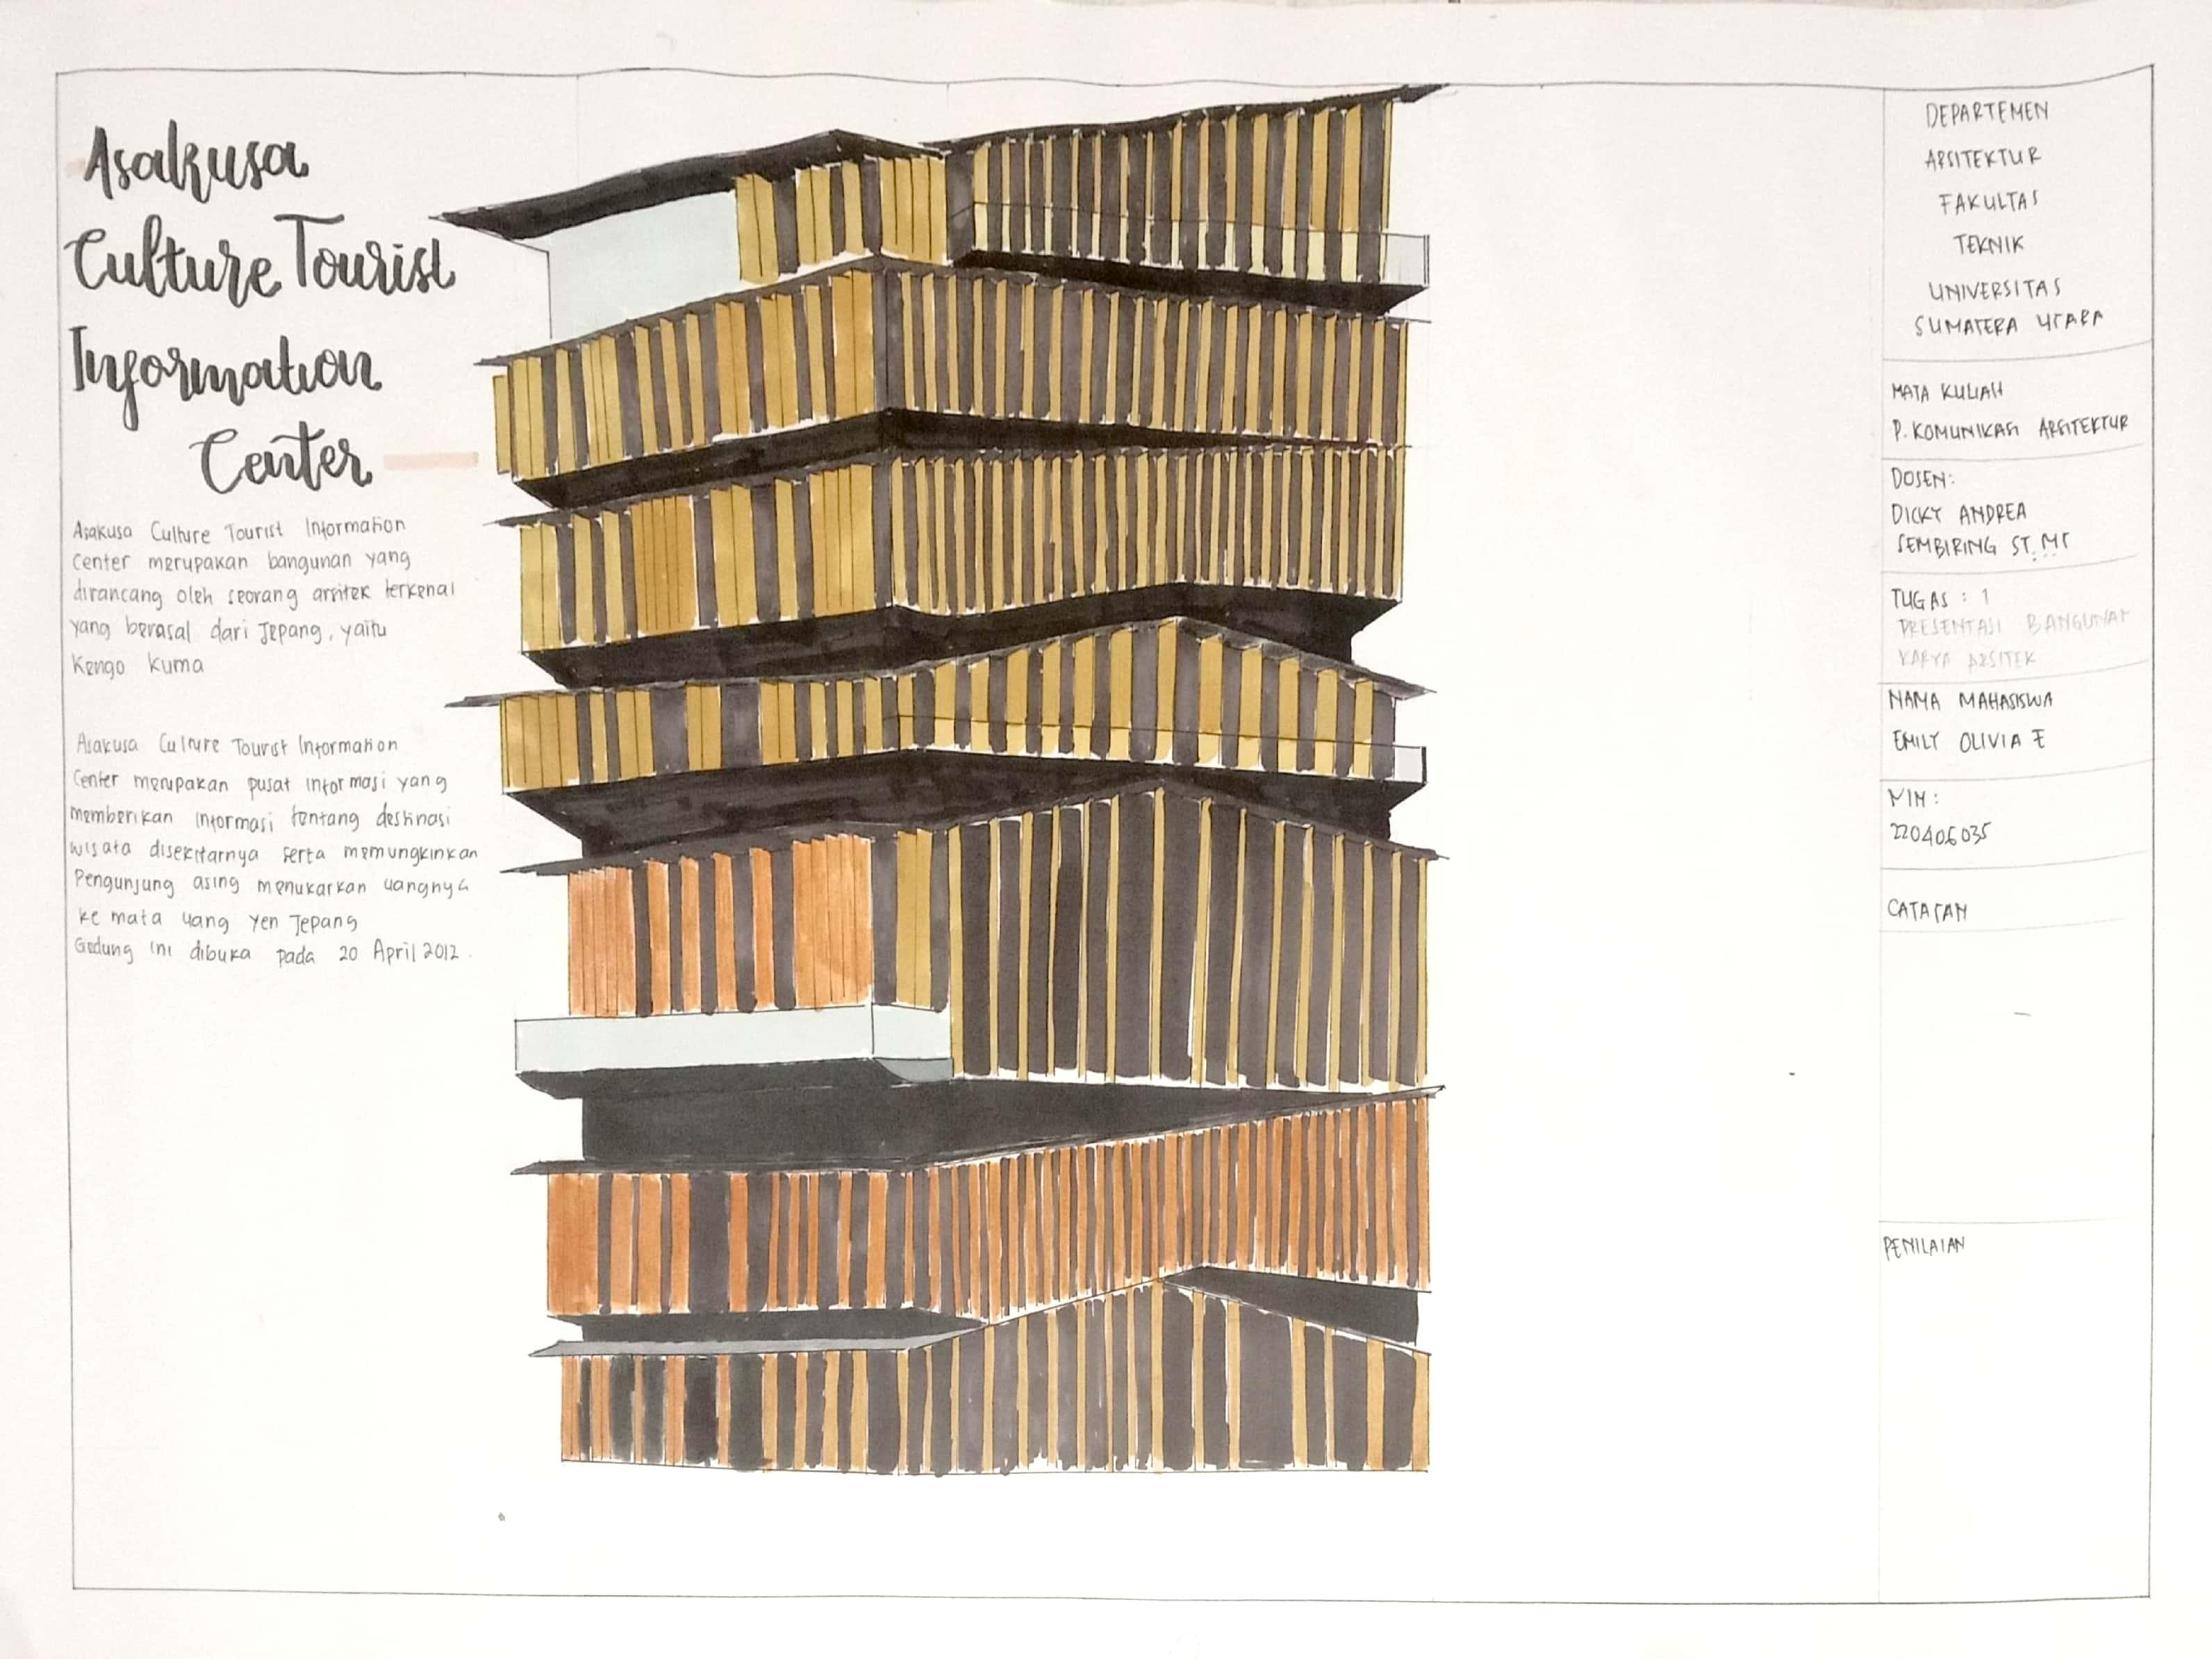 Asakusa
Culture Tourist
Information
Center
Asakusa Culture Tourist Information
Center merupakan bangunan yang
dirancang oleh seorang arsitek terkenal
yang berasal dari Jepang, yaitu
Kengo Kuma
Asakusa Culture Tourist Information
Center merupakan pusat informasi yang
memberikan informasi tentang destinasi
wisata disekitarnya serta memungkinkan
Pengunjung asing menukarkan uangnya
ke mata uang yen Jepang
Gedung ini dibuka pada 20 April 2012.
DEPARTEMEN
ARSITEKTUR
FAKULTAS
TEKNIK
UNIVERSITAS
SUMATERA UTARA
MATA KULIAH
P. KOMUNIKASI ARSITEKTUR
DOSEN:
DICKY ANDREA
SEMBIRING ST. MT
TUGAS : 1
PRESENTASI BANGUNAN
KARYA ARSITEK
NAMA MAHASISWA
EMILY OLIVIA E
NIM:
220406035
CATATAN
PENILAIAN